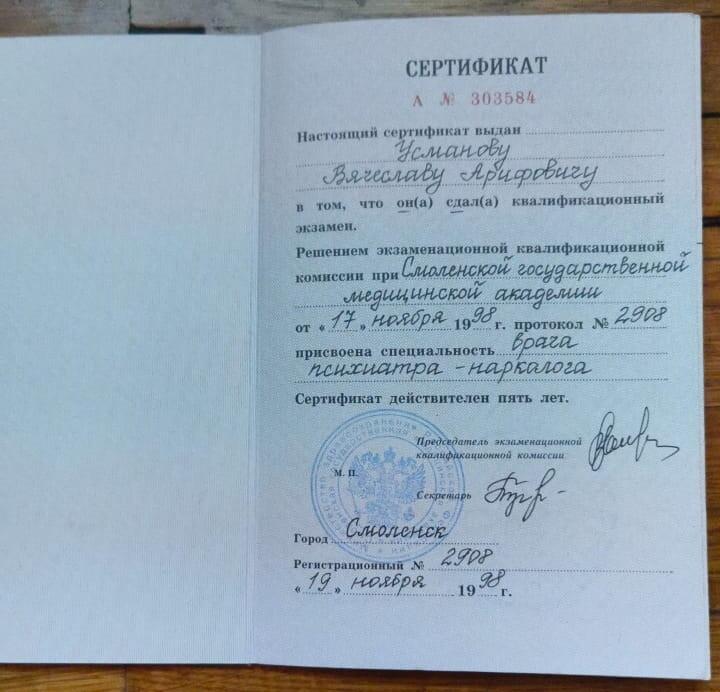 СЕРТИФИКАТ
А № 303584
Настоящий сертификат выдан
Усманову
Вячеславу Арифовичу
в том, что он(а) сдал(а) квалификационный
экзамен.
Решением экзаменационной квалификационной
комиссии при Смоленской государственной
медицинской академии
от «17» ноября 1998 г. протокол № 2908
присвоена специальность врача
психиатра - наркалога
Сертификат действителен пять лет.
Председатель экзаменационной
квалификационной комиссии
М. П.
Секретарь
Город Смоленск
Регистрационный № 2908
«19» ноября 1998 г.